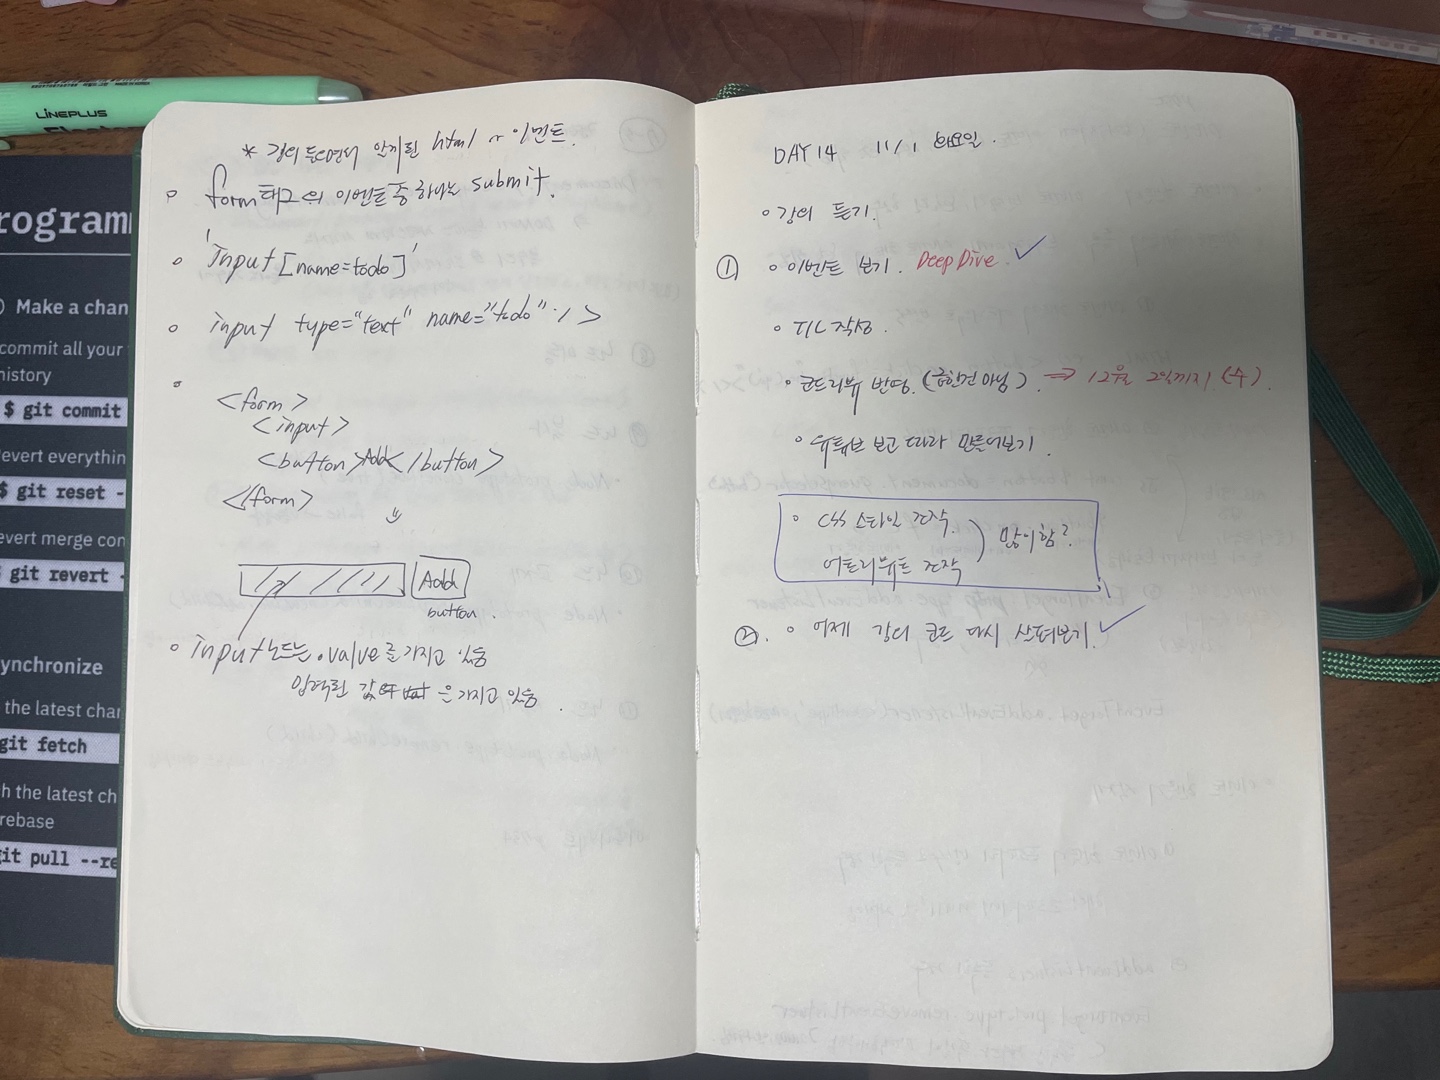 LINEPLUS
rogram
Make a chan
commit all your
history
$ git commit
evert everythin
$ git reset -
evert merge con
git revert -
ynchronize
the latest char
git fetch
h the latest ch
rebase
git pull --re
* 강의 들으면서 알게된 html ~ 이벤트.
form태그의 이벤트중 하나는 submit.
'input[name=todo]'
input type="text" name="todo" />
<form>
<input>
<button>Add</button>
</form>
Add
button.
input노드는 .value를 가지고 있음
입력된 값 은 가지고 있음.
DAY14 11/1 화요일.
강의 듣기.
① 이벤트 보기. Deep Dive. ✓
TIL작성.
코드리뷰 반영. (급한건 아님). ⇒ 12월 2일까지 (수).
유튜브 보고 따라 만들어보기.
CSS 스타일 조작.
어트리뷰트 조작
많이함?
②. 어제 강의 코드 다시 살펴보기. ✓